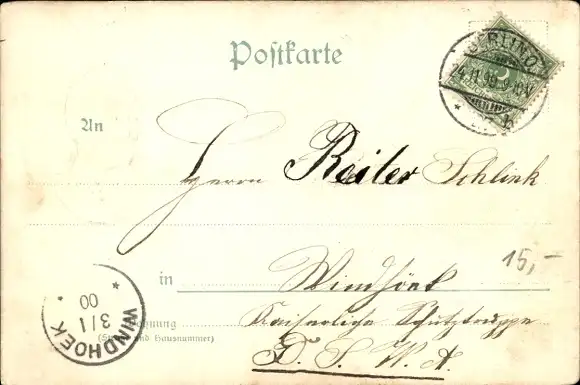 Postkarte
BERLIN
An
Herrn Reiter Schlink
15,-
in Windhoek
Wohnung
Kaiserliche Schutztruppe
(Straße und Hausnummer)
D. S. W. A.
WINDHOEK
3/1
00